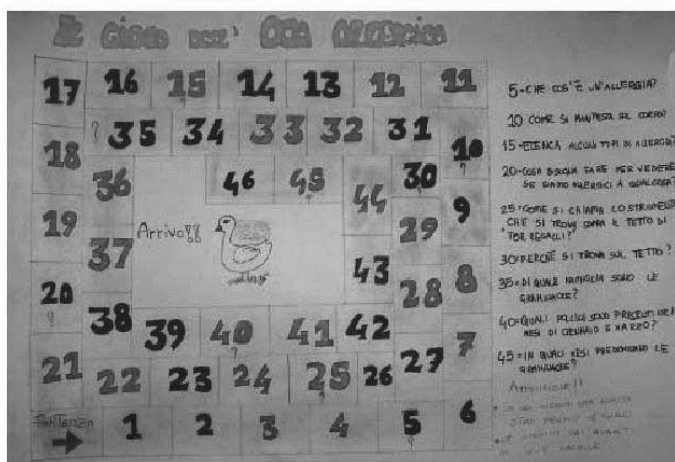 Il Gioco dell' OCA Allergica
17 16 15 14 13 12 11
? 35 34 33 32 31
18 10
36 46 45 44 30
19 Arrivo!! 9
37 29
20 43 28 8
38 39 40 41 42 7
21 22 23 24 25 26 27
Partenza 1 2 3 4 5 6
5-CHE COS'È UN'ALLERGIA?
10 COME SI MANIFESTA SUL CORPO?
15-ELENCA ALCUNI TIPI DI ALLERGIA?
20-COSA BISOGNA FARE PER VEDERE
SE SIAMO ALLERGICI A QUALCOSA?
25-COME SI CHIAMA LO STRUMENTO
CHE SI TROVA SOPRA IL TETTO DI
TOR REGALLI?
30-PERCHÉ SI TROVA SUL TETTO?
35-DI QUALE FAMIGLIA SONO LE
GRAMINACEE?
40-QUALI POLLINI SONO PRESENTI NEI
MESI DI GENNAIO E MARZO?
45-IN QUALI MESI PREDOMINANO LE
GRAMINACEE?
ATTENZIONE!!